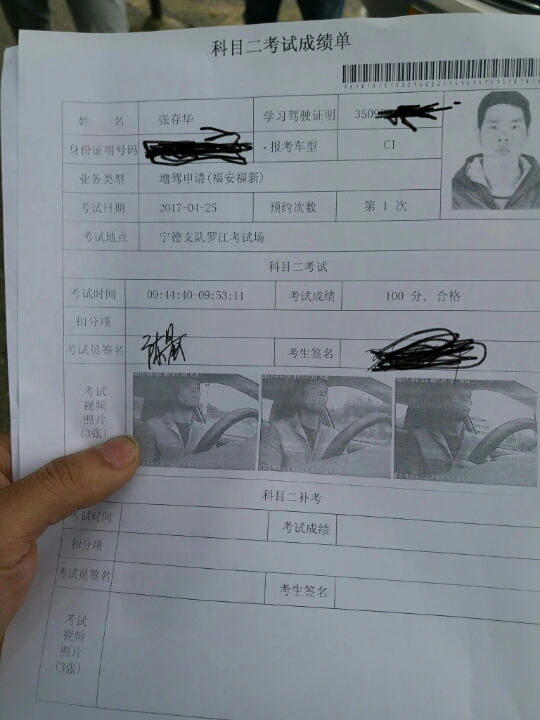 科目二考试成绩单
姓 名 张存华 学习驾驶证明 3509
身份证明号码 报考车型 C1
业务类型 增驾申请(福安福新)
考试日期 2017-04-25 预约次数 第 1 次
考试地点 宁德支队罗江考试场
科目二考试
考试时间 09:44:40-09:53:11 考试成绩 100 分, 合格
扣分项
考试员签名 考生签名
考试
视频
照片
(3张)
科目二补考
考试时间 考试成绩
扣分项
考试员签名 考生签名
考试
视频
照片
(3张)